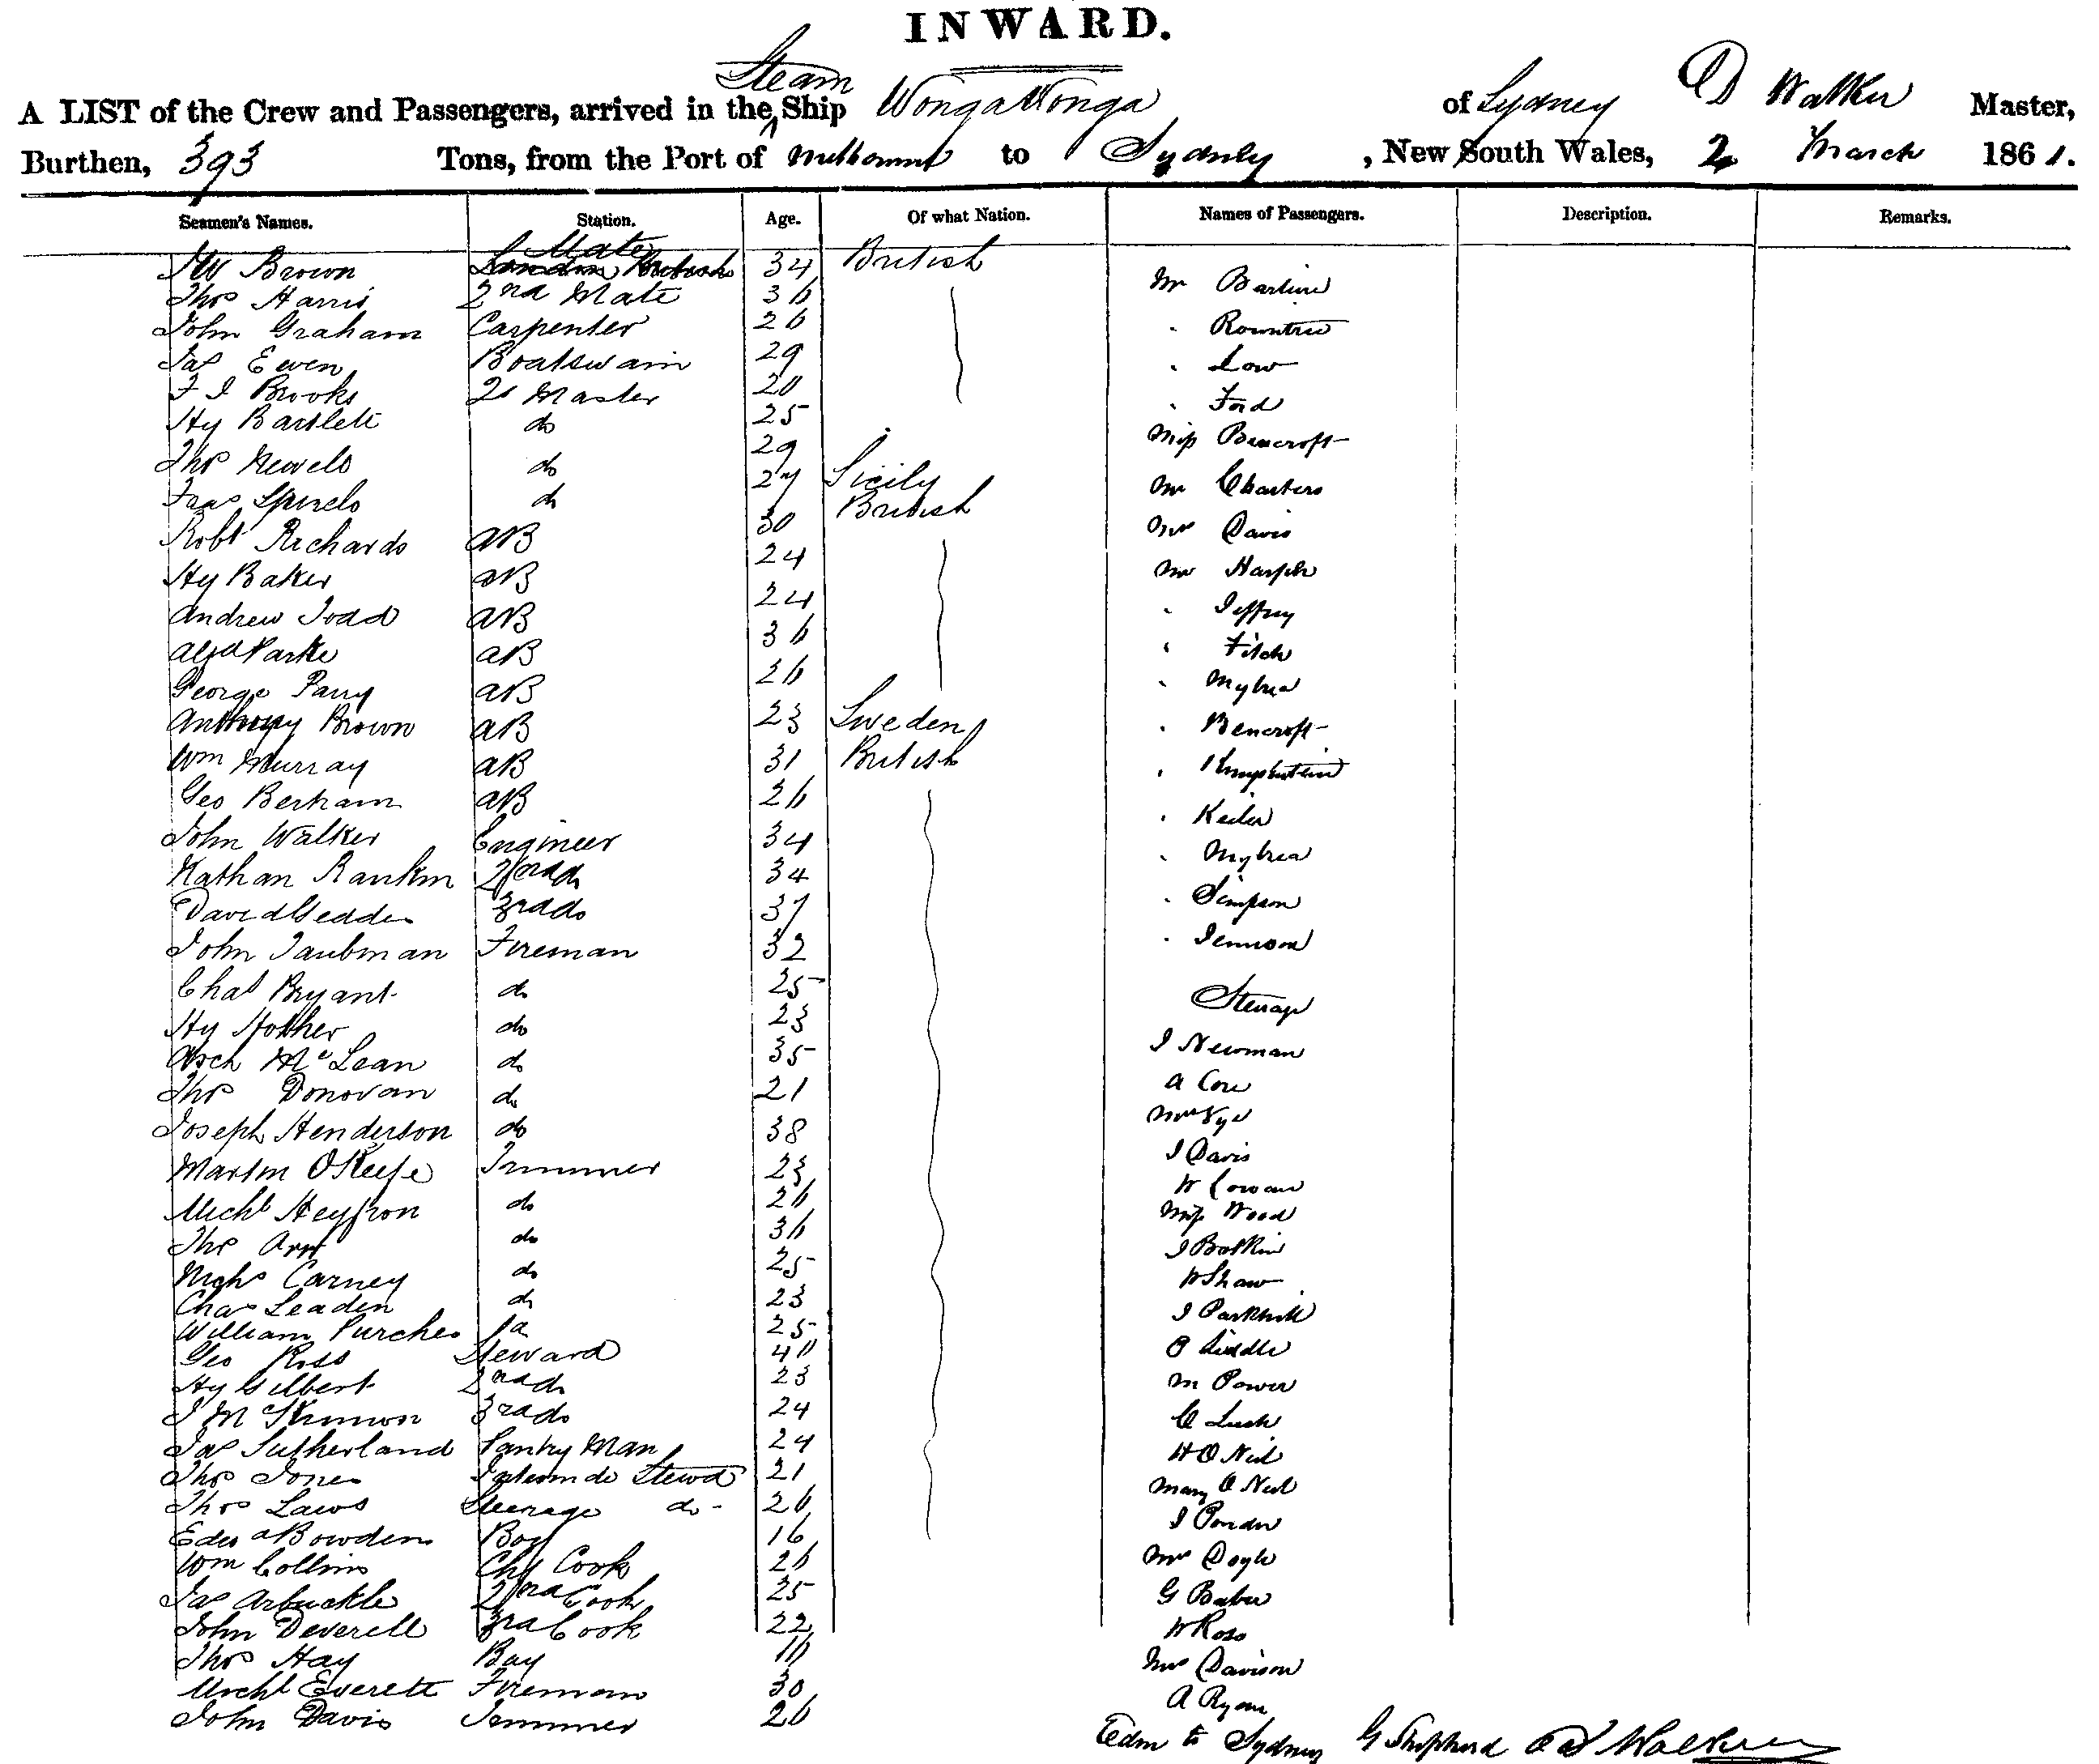 INWARD.
Steam
A LIST of the Crew and Passengers, arrived in the Ship Wonga Wonga of Sydney D Walker Master,
Burthen, 393 Tons, from the Port of Melbourne to Sydney, New South Wales, 2 March 1861.
Seamen's Names. Station. Age. Of what Nation. Names of Passengers. Description. Remarks.
J W Brown Mate 34 British Mr
Thos Harris 2nd Mate 36 " Rowntree
John Graham Carpenter 26 " Low
Jas Ewen Boatswain 29 " Ford
F J Brooks Qr Master 20 Miss Bencroft
Hy Bartlett do 25 Mr Charters
Thos do 29 Mrs Davis
Fras do 27 Sicily Mr
Robt Richards AB 30 British " Jeffrey
Hy Baker AB 24 " Fitch
Andrew Todd AB 24 " Mylrea
Alfd Parke AB 36 " Bencroft
George Parry AB 26
Anthony Brown AB 23 Sweden
Wm Murray AB 31 British " Mylrea
Geo Bertram AB 26 " Simpson
John Walker Engineer 34
Nathan Rankin 2nd do 34 Steerage
David Geddes 3rd do 37 J Newman
John Taubman Fireman 32
Chas Bryant do 25
Hy do 23 J Davis
Arch McLean do 35 W Cowan
Thos Donovan do 21 Miss Wood
Joseph Henderson do 38
Martin O'Keefe Trimmer 23 W Shaw
Michl do 26 J Parkhill
Thos do 36
Michs Carney do 25 M Power
Chas Leaden do 23 C Lush
William Purches 25 H O Neil
Geo Ross Steward 40 Mary O Neil
Hy Gilbert 2nd do 23
J 3rd do 24 Mrs Doyle
Jas Sutherland Pantry Man 24 G Baber
Thos Jones Stewd 21 W Ross
Thos Laws Steerage do 26 Mrs Davison
Edwd Bowden Boy 16 A Ryan
Wm Collins Chf Cook 26
Jas Arbuckle 2nd Cook 25
John Deverell 3rd Cook 22
Thos Hay Boy 16
Michl Everett Fireman 30
John Davis Trimmer 26
Edm to Sydney G Shepherd Walker